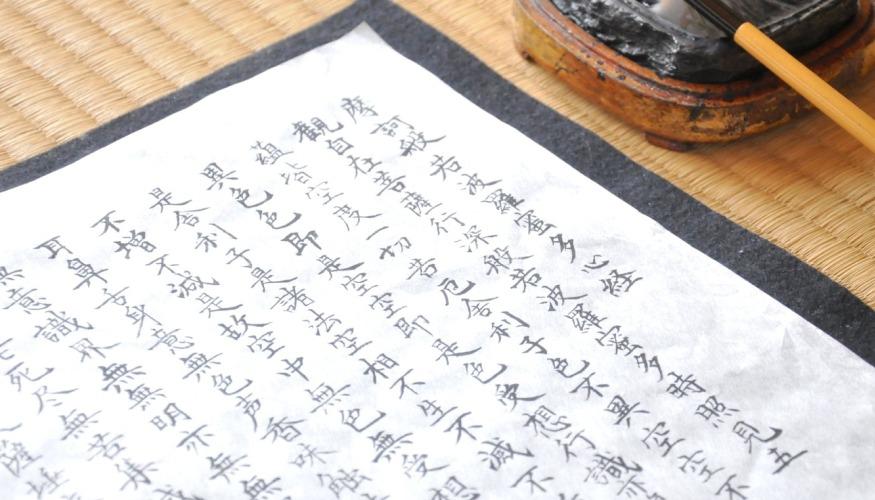 摩訶般若波羅蜜多心経
観自在菩薩行深般若波羅蜜多時照見五
蘊皆空度一切苦厄舎利子色不異空空不
異色色即是空空即是色受想行識亦
是舎利子是諸法空相不生不滅不
不増不減是故空中無色無受想
耳鼻舌身意無色声香味触
無意識界無無明亦無
死尽無苦集
薩埵